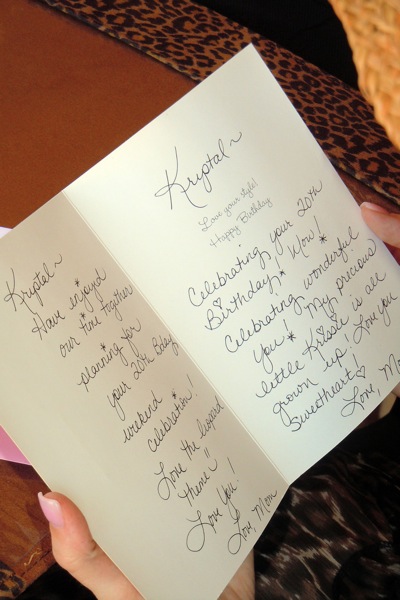 Krystal~
Have enjoyed
our time together
planning for
your 20th Bday
weekend
celebration!
Love the leopard
theme!!
Love You!
Love, Mom
Krystal~
Love your style!
Happy Birthday
Celebrating your 20th
Birthday! Wow!
Celebrating wonderful
you! My precious
little Krissie is all
grown up! Love you
Sweetheart!
Love, Mom